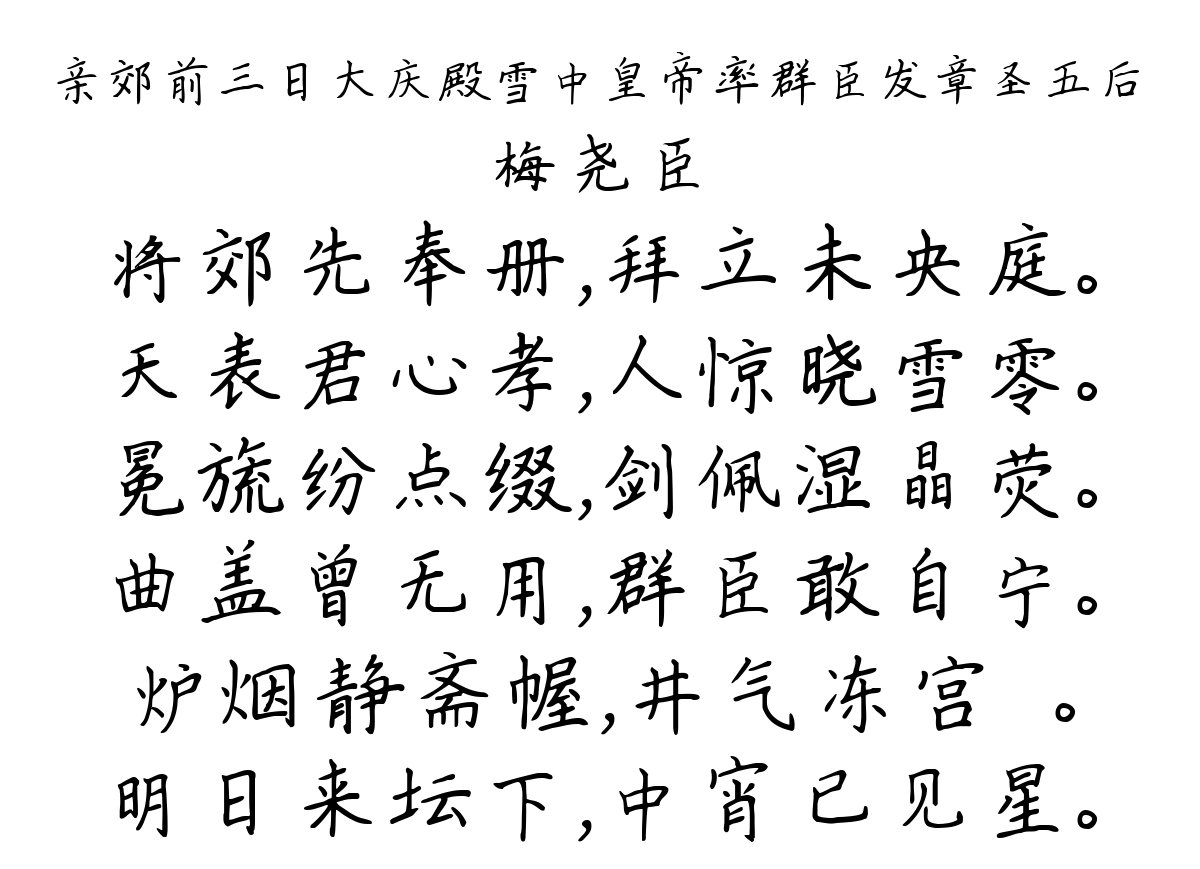 亲郊前三日大庆殿雪中皇帝率群臣发章圣五后
梅尧臣
将郊先奉册,拜立未央庭。
天表君心孝,人惊晓雪零。
冕旒纷点缀,剑佩湿晶荧。
曲盖曾无用,群臣敢自宁。
炉烟静斋幄,井气冻宫 。
明日来坛下,中宵已见星。